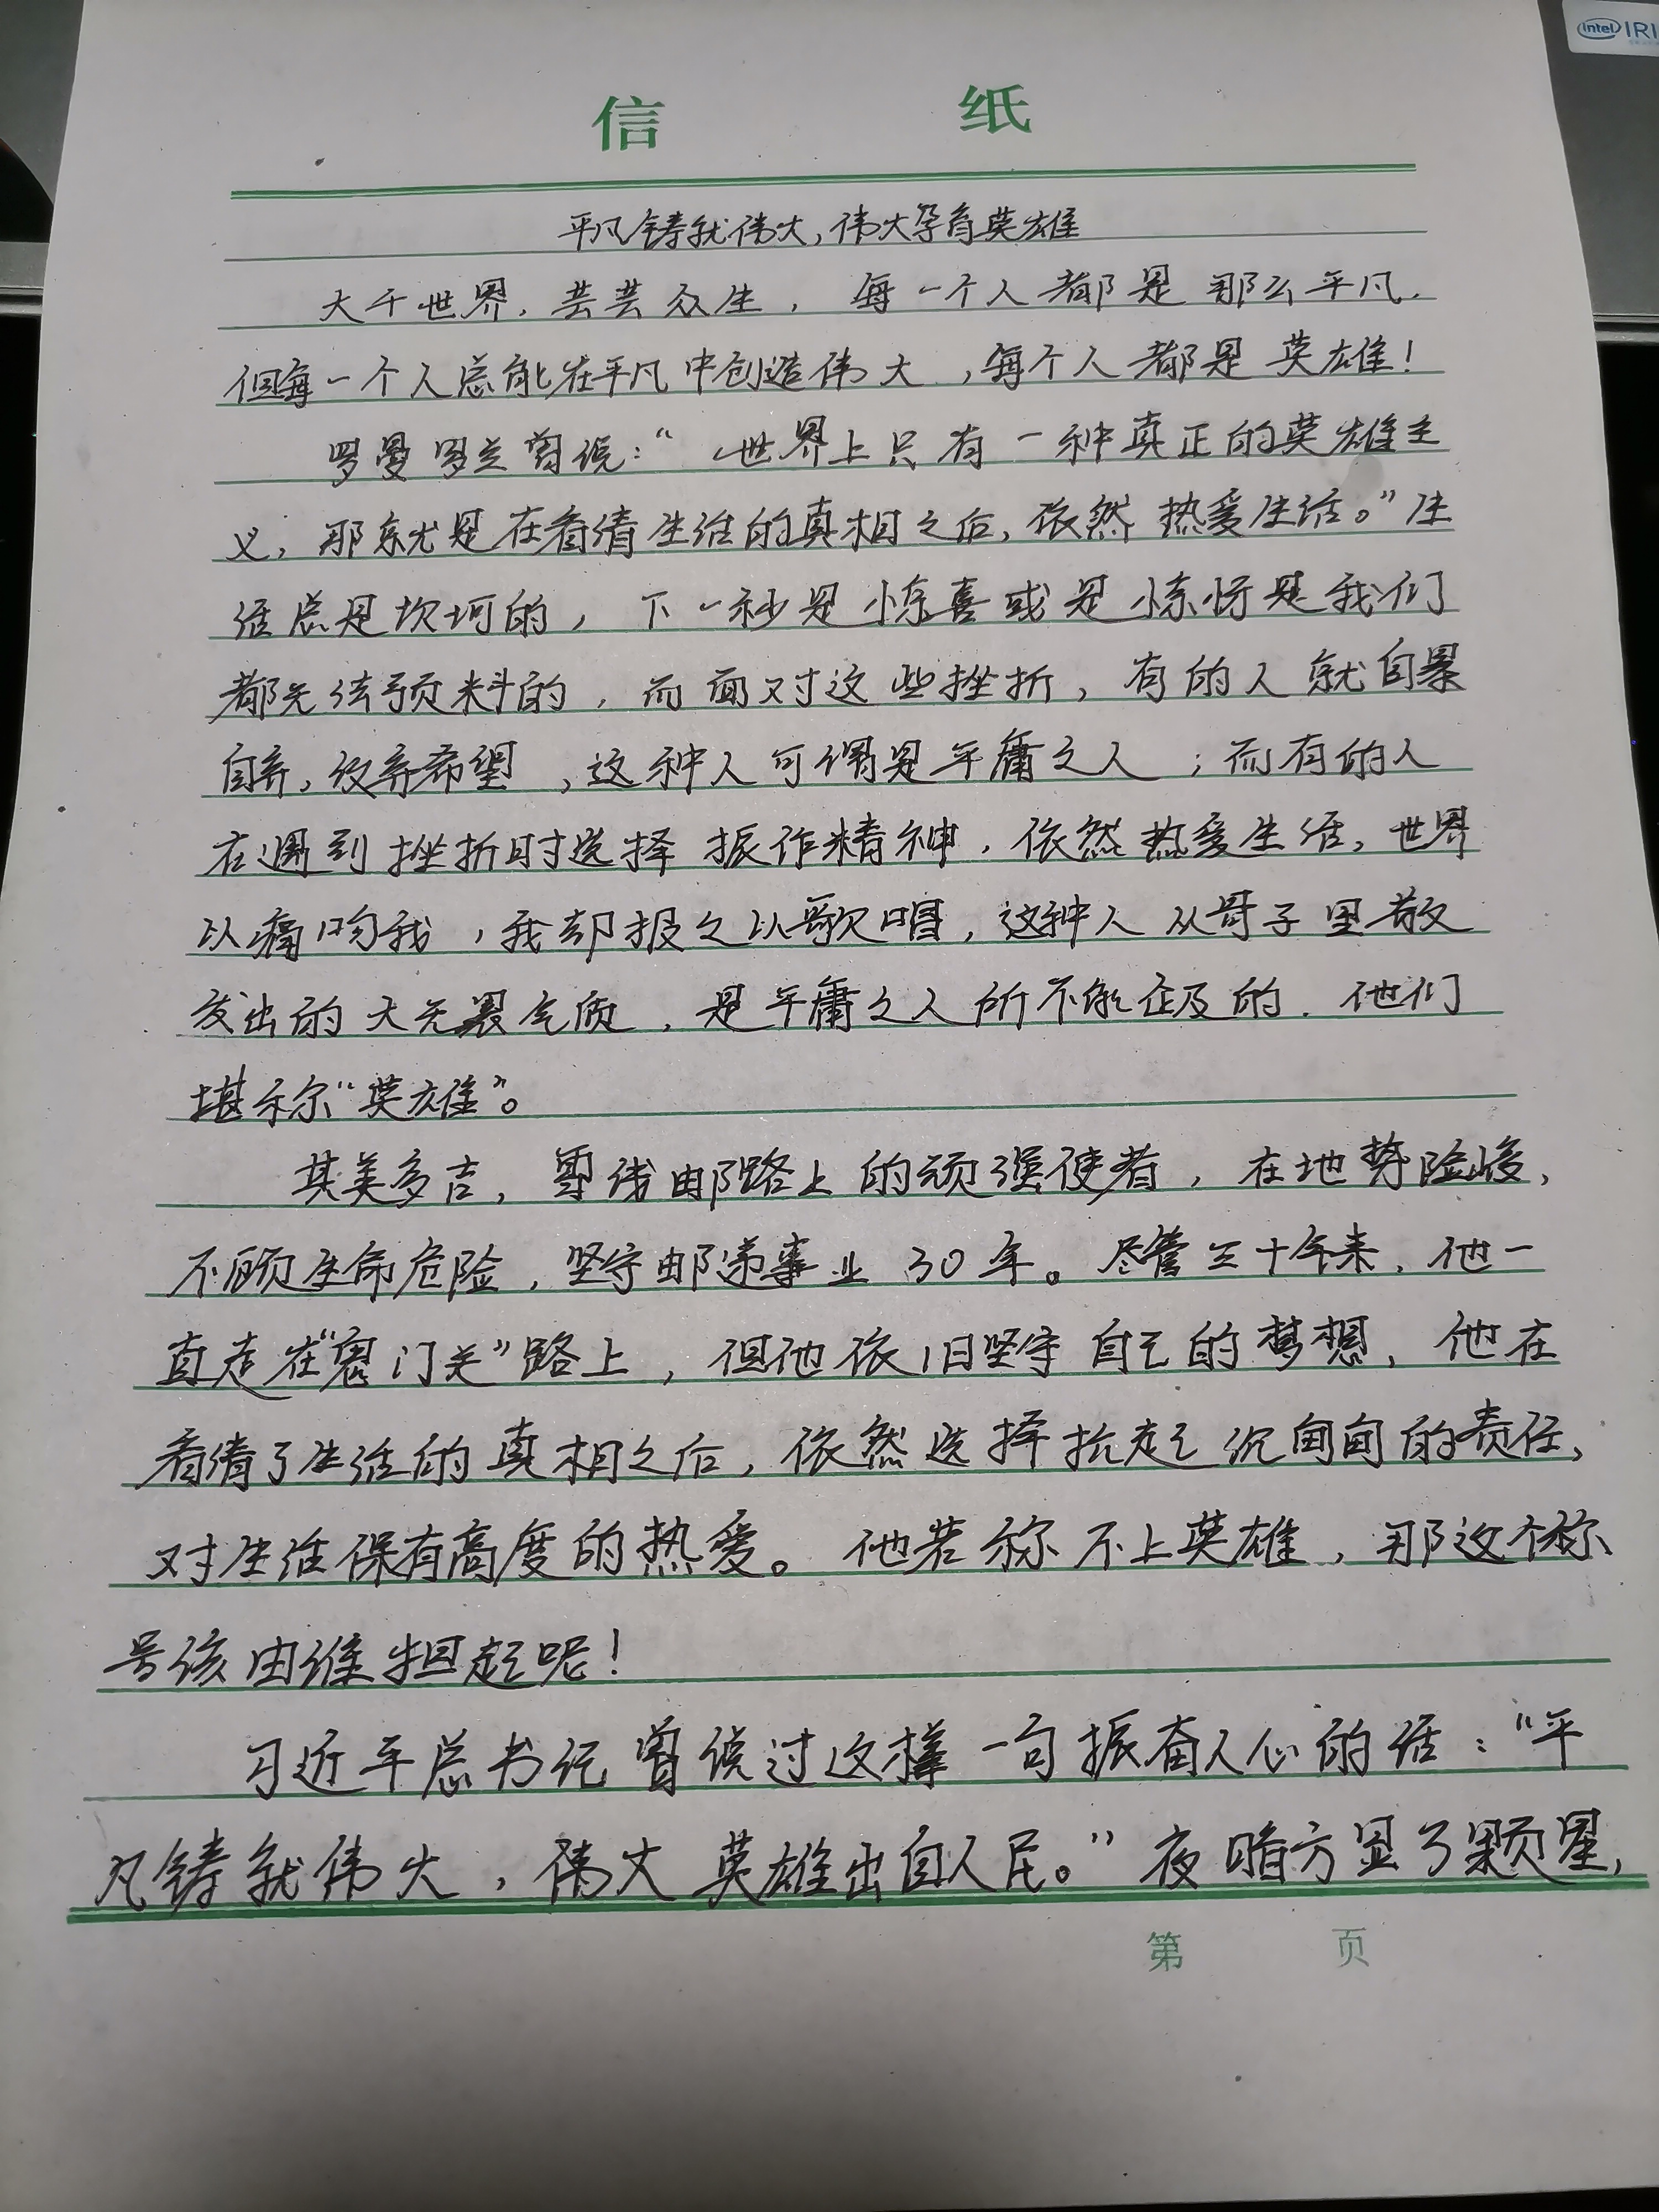 intel IRI
信 纸
平凡铸就伟大,伟大孕育英雄
大千世界,芸芸众生,每一个人都是那么平凡.
但每一个人总能在平凡中创造伟大,每个人都是英雄!
罗曼罗兰曾说:“世界上只有一种真正的英雄主
义,那就是在看清生活的真相之后,依然热爱生活。”生
活总是坎坷的,下一秒是惊喜或是惊愕是我们
都无法预料的,而面对这些挫折,有的人就自暴
自弃,放弃希望,这种人可谓是平庸之人;而有的人
在遇到挫折时选择振作精神,依然热爱生活,世界
以痛吻我,我却报之以歌唱,这种人从骨子里散
发出的大无畏气质,是平庸之人所不能企及的.他们
堪称“英雄”。
其美多吉,雪线邮路上的顽强使者,在地势险峻,
不顾生命危险,坚守邮递事业30年。尽管三十年来,他一
直走在“鬼门关”路上,但他依旧坚守自己的梦想,他在
看清了生活的真相之后,依然选择抗起沉甸甸的责任,
对生活保有高度的热爱。他若称不上英雄,那这个称
号该由谁担起呢!
习近平总书记曾说过这样一句振奋人心的话:“平
凡铸就伟大,伟大英雄出自人民。”夜暗方显了颗星,
第 页